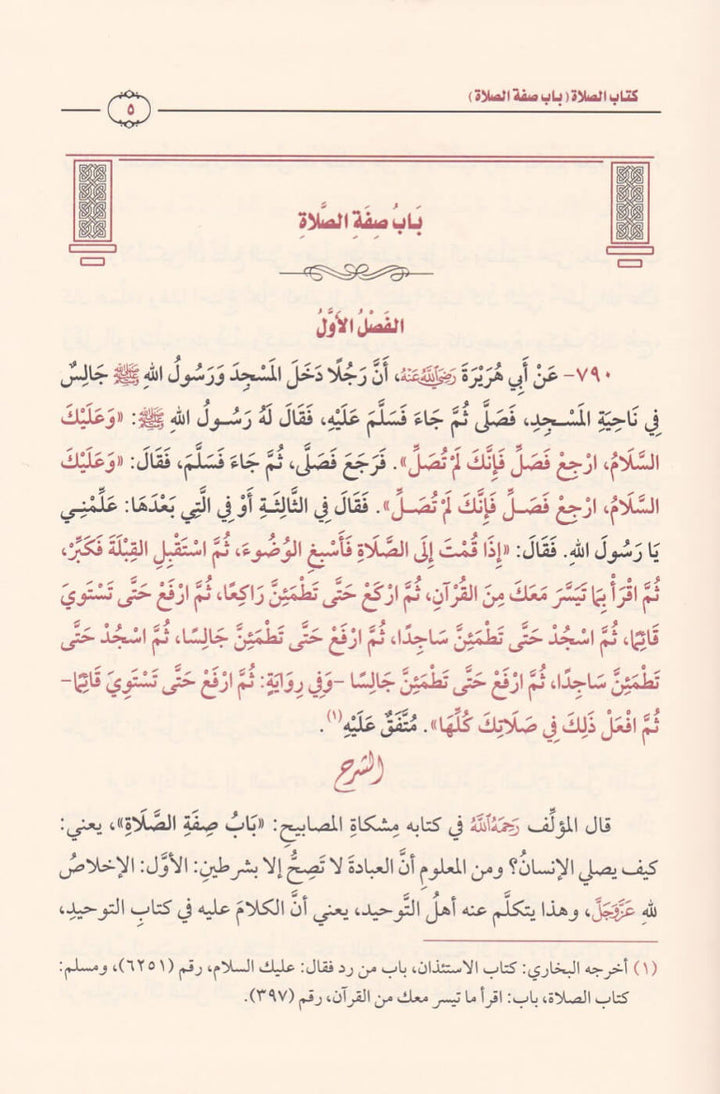 كتاب الصلاة (باب صفة الصلاة)
٥
بَابُ صِفَةِ الصَّلَاةِ
الفَصْلُ الأَوَّلُ
٧٩٠- عَنْ أَبِي هُرَيْرَةَ رَضِيَ اللَّهُ عَنْهُ، أَنَّ رَجُلًا دَخَلَ المَسْجِدَ وَرَسُولُ اللهِ ﷺ جَالِسٌ
فِي نَاحِيَةِ المَسْجِدِ، فَصَلَّى ثُمَّ جَاءَ فَسَلَّمَ عَلَيْهِ، فَقَالَ لَهُ رَسُولُ اللهِ ﷺ: «وَعَلَيْكَ
السَّلَامُ، ارْجِعْ فَصَلِّ فَإِنَّكَ لَمْ تُصَلِّ». فَرَجَعَ فَصَلَّى، ثُمَّ جَاءَ فَسَلَّمَ، فَقَالَ: «وَعَلَيْكَ
السَّلَامُ، ارْجِعْ فَصَلِّ فَإِنَّكَ لَمْ تُصَلِّ». فَقَالَ فِي الثَّالِثَةِ أَوْ فِي الَّتِي بَعْدَهَا: عَلِّمْنِي
يَا رَسُولَ اللهِ. فَقَالَ: «إِذَا قُمْتَ إِلَى الصَّلَاةِ فَأَسْبِغِ الوُضُوءَ، ثُمَّ اسْتَقْبِلِ القِبْلَةَ فَكَبِّرْ،
ثُمَّ اقْرَأْ بِمَا تَيَسَّرَ مَعَكَ مِنَ القُرْآنِ، ثُمَّ ارْكَعْ حَتَّى تَطْمَئِنَّ رَاكِعًا، ثُمَّ ارْفَعْ حَتَّى تَسْتَوِيَ
قَائِمًا، ثُمَّ اسْجُدْ حَتَّى تَطْمَئِنَّ سَاجِدًا، ثُمَّ ارْفَعْ حَتَّى تَطْمَئِنَّ جَالِسًا، ثُمَّ اسْجُدْ حَتَّى
تَطْمَئِنَّ سَاجِدًا، ثُمَّ ارْفَعْ حَتَّى تَطْمَئِنَّ جَالِسًا -وَفِي رِوَايَةٍ: ثُمَّ ارْفَعْ حَتَّى تَسْتَوِيَ قَائِمًا-
ثُمَّ افْعَلْ ذَلِكَ فِي صَلَاتِكَ كُلِّهَا». مُتَّفَقٌ عَلَيْهِ(١).
الشرح
قال المؤلِّف رَحِمَهُ اللَّهُ في كتابه مِشكاةِ المصابيح: «بَابُ صِفَةِ الصَّلَاةِ»، يعني:
كيف يصلي الإنسانُ؟ ومن المعلومِ أنَّ العبادةَ لا تَصِحُّ إلا بشرطينِ: الأوَّل: الإخلاصُ
للهِ عَزَّ وَجَلَّ، وهذا يتكلَّم عنه أهلُ التَّوحيد، يعني أنَّ الكلامَ عليه في كتابِ التوحيدِ،
(١) أخرجه البخاري: كتاب الاستئذان، باب من رد فقال: عليك السلام، رقم (٦٢٥١)، ومسلم:
كتاب الصلاة، باب: اقرأ ما تيسر معك من القرآن، رقم (٣٩٧).